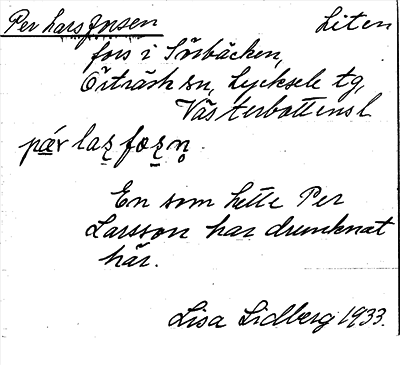 Per Larsforsen Liten
fors i Sörbäcken,
Örträsk sn, Lycksele tg,
Västerbottensl
pæ̱r laʂ foʂn̥.
En som hette Per
Larsson har drunknat
här.
Lisa Lidberg 1933.